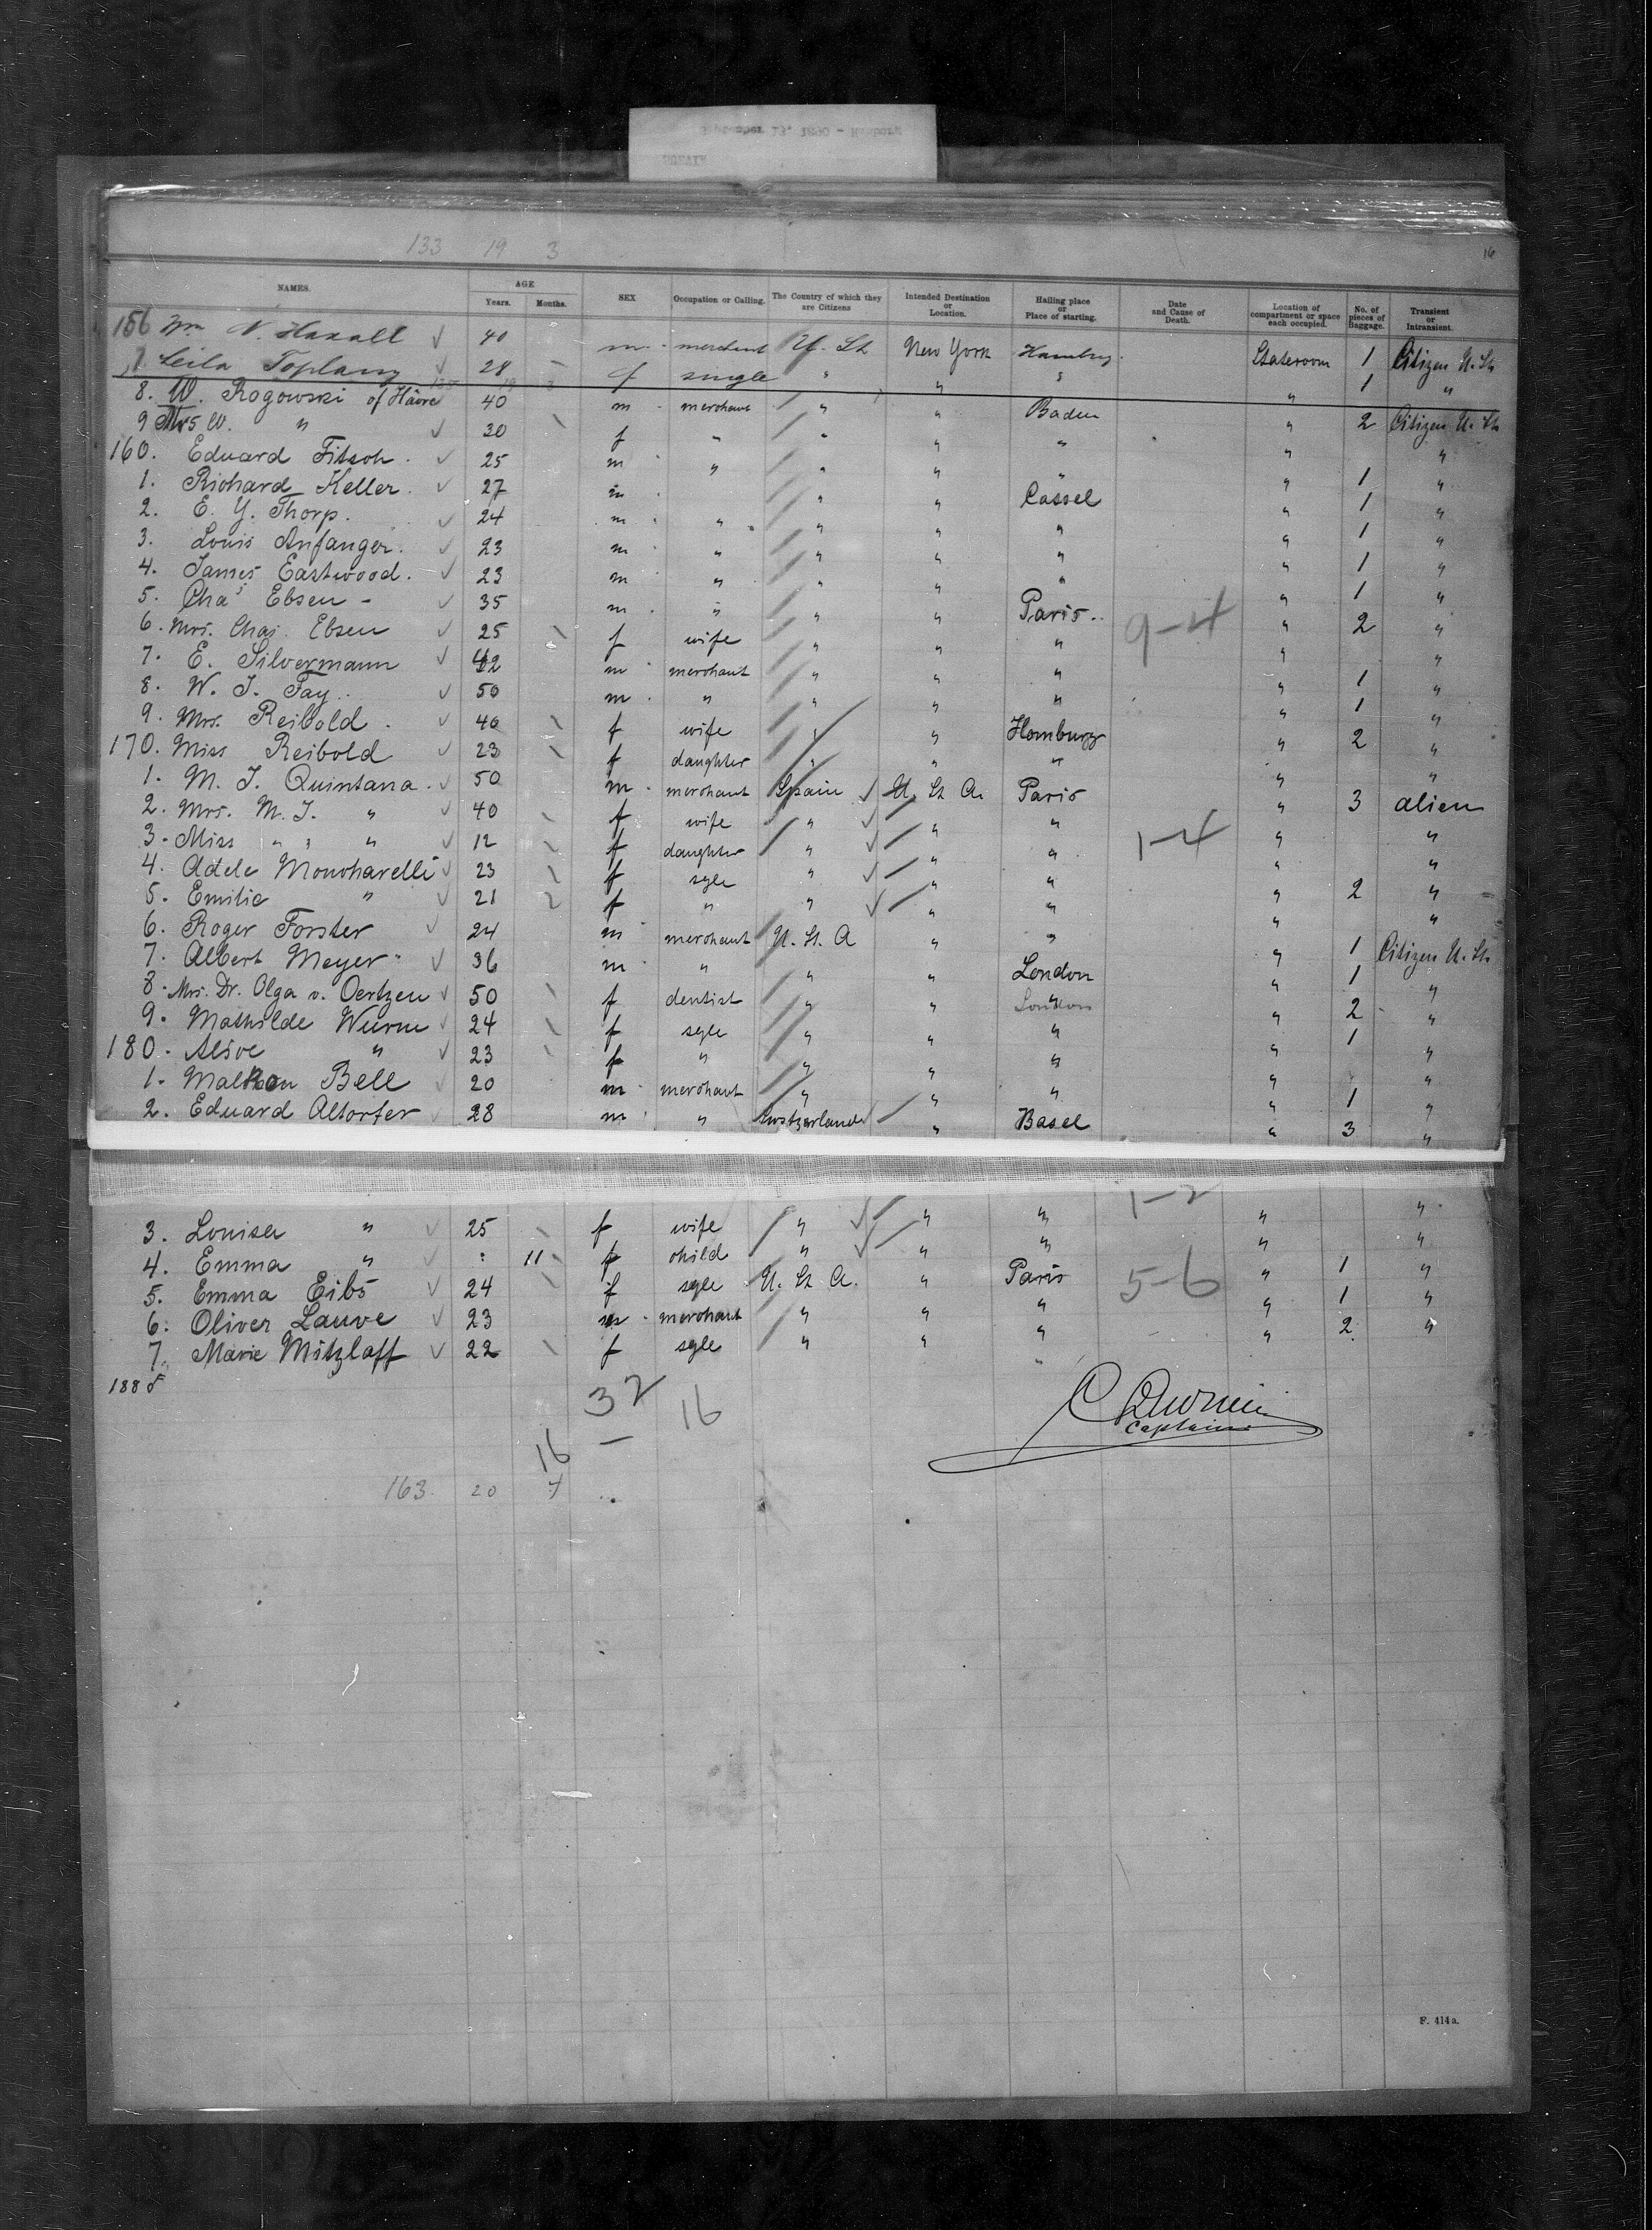 133 19 3
16
NAMES. AGE Years. Months. SEX Occupation or Calling. The Country of which they are Citizens Intended Destination or Location. Hailing place or Place of starting. Date and Cause of Death. Location of compartment or space each occupied. No. of pieces of Baggage. Transient or Intransient.
156 Wm N. Haxall 40 m merchant U. St New York Hamburg Stateroom 1 Citizen U. St.
7. Leila 28 f single " " " " 1 "
8. W. Rogowski of Havre 40 m merchant " " Baden " 2 Citizen U. St.
9 Mrs W. " 30 f " " " " " "
160. Eduard Fitsch. 25 m " " " " " 1 "
1. Richard Keller. 27 m " " Cassel " 1 "
2. E. Y. Thorp. 24 m " " " " " 1 "
3. Louis Anfanger. 23 m " " " " " 1 "
4. James Eastwood. 23 m " " " " " 1 "
5. Chas Ebsen - 35 m " " " Paris.. 9-4 " 2 "
6. Mrs. Chas. Ebsen 25 f wife " " " " "
7. E. Silvermann 42 m merchant " " " " 1 "
8. W. J. Fay.. 50 m " " " " " 1 "
9. Mrs. Reibold 40 f wife " " Homburg " 2 "
170. Miss Reibold 23 f daughter " " " " "
1. M. J. Quintana. 50 m merchant Spain U. St A. Paris " 3 alien
2. Mrs. M. J. " 40 f wife " " " 1-4 " "
3. Miss " " " 12 f daughter " " " " "
4. Adele Monoharelli 23 f sgle " " " " 2 "
5. Emilie " 21 2 f " " " " " "
6. Roger Forster 24 m merchant U. St. A " " " 1 Citizen U. St.
7. Albert Meyer 36 m " " " London " 1 "
8. Mrs. Dr. Olga v. Oertzen 50 f dentist " " London " 2 "
9. Mathilde Wurm 24 f sgle " " " " 1 "
180. Alice " 23 f " " " " " "
1. Bell 20 m merchant " " " " 1 "
2. Eduard Altorfer 28 m " Switzerland " Basel " 3 "
3. Louisa " 25 f wife " " " 1-2 " "
4. Emma " : 11 f child " " " " "
5. Emma Eibs 24 f sgle U. St A. " Paris 5-6 " 1 "
6. Oliver Lauve 23 m merchant " " " " 1 "
7. Marie Mitzlaff 22 f sgle " " " " 2 "
188
32 16
16 —
C
Captain
163. 20 4
F. 414a.